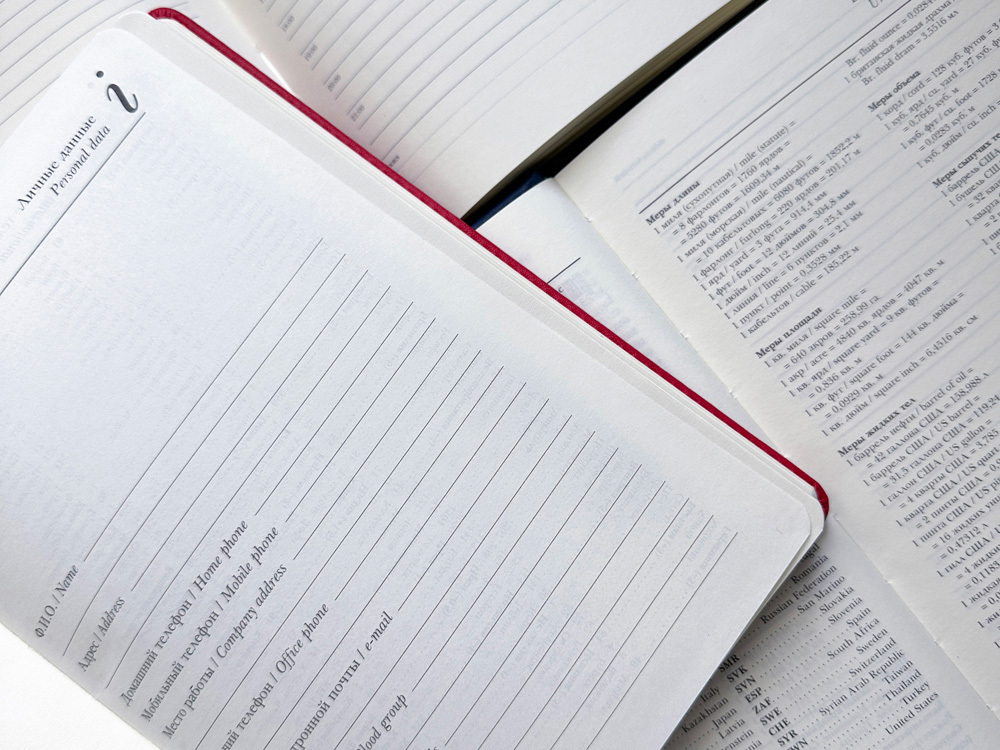 Личные данные
Personal data
Ф.И.О. / Name
Адрес / Address
Домашний телефон / Home phone
Мобильный телефон / Mobile phone
Место работы / Company address
телефон / Office phone
почты / e-mail
group
18:00
19:00
20:00
21:00
Br. fluid ounce =
1 британская жидкая драхма
Br. fluid dram = 3,5516 мл
Меры объема
1 корд / cord = 128 куб. футов =
1 куб. ярд / cu. yard = 27 куб.
= 0,7645 куб. м
1 куб. фут / cu. foot = 1728
= 0,0283 куб. м
1 куб. дюйм / cu. inch
Меры сыпучих
1 баррель США
1 бушель США
Меры длины
1 миля (сухопутная) / mile (statute) =
= 8 фарлонгов = 1760 ярдов =
= 5280 футов = 1609,34 м
1 миля (морская) / mile (nautical) =
= 10 кабельтовых = 6080 футов = 1852,2 м
1 фарлонг / furlong = 220 ярдов = 201,17 м
1 ярд / yard = 3 фута = 914,4 мм
1 фут / foot = 12 дюймов = 304,8 мм
1 дюйм / inch = 12 линий = 25,4 мм
1 линия / line = 6 пунктов = 2,1 мм
1 пункт / point = 0,3528 мм
1 кабельтов / cable = 185,22 м
Меры площади
1 кв. миля / square mile =
= 640 акров = 258,99 га
1 акр / acre = 4840 кв. ярдов = 4047 кв. м
1 кв. ярд / square yard = 9 кв. футов =
= 0,836 кв. м
1 кв. фут / square foot = 144 кв. дюйма =
= 0,0929 кв. м
1 кв. дюйм / square inch = 6,4516 кв. см
Меры жидких тел
1 баррель нефти / barrel of oil =
= 42 галлона США = 158,988 л
1 баррель США / US barrel =
= 31,5 галлона США =
1 галлон США / US gallon =
= 4 кварты США = 3,785
1 кварта США / US quart
= 2 пинты США =
1 пинта США / US
= 16 жидких
= 0,47312 л
1 гилл США /
= 4
Romania
Russian Federation
SMR San Marino
SVK Slovakia
SVN Slovenia
ESP Spain
ZAF South Africa
SWE Sweden
CHE Switzerland
SYR Syrian Arab Republic
Taiwan
Thailand
Turkey
United States
Italy
Kazakhstan
Japan
Latvia